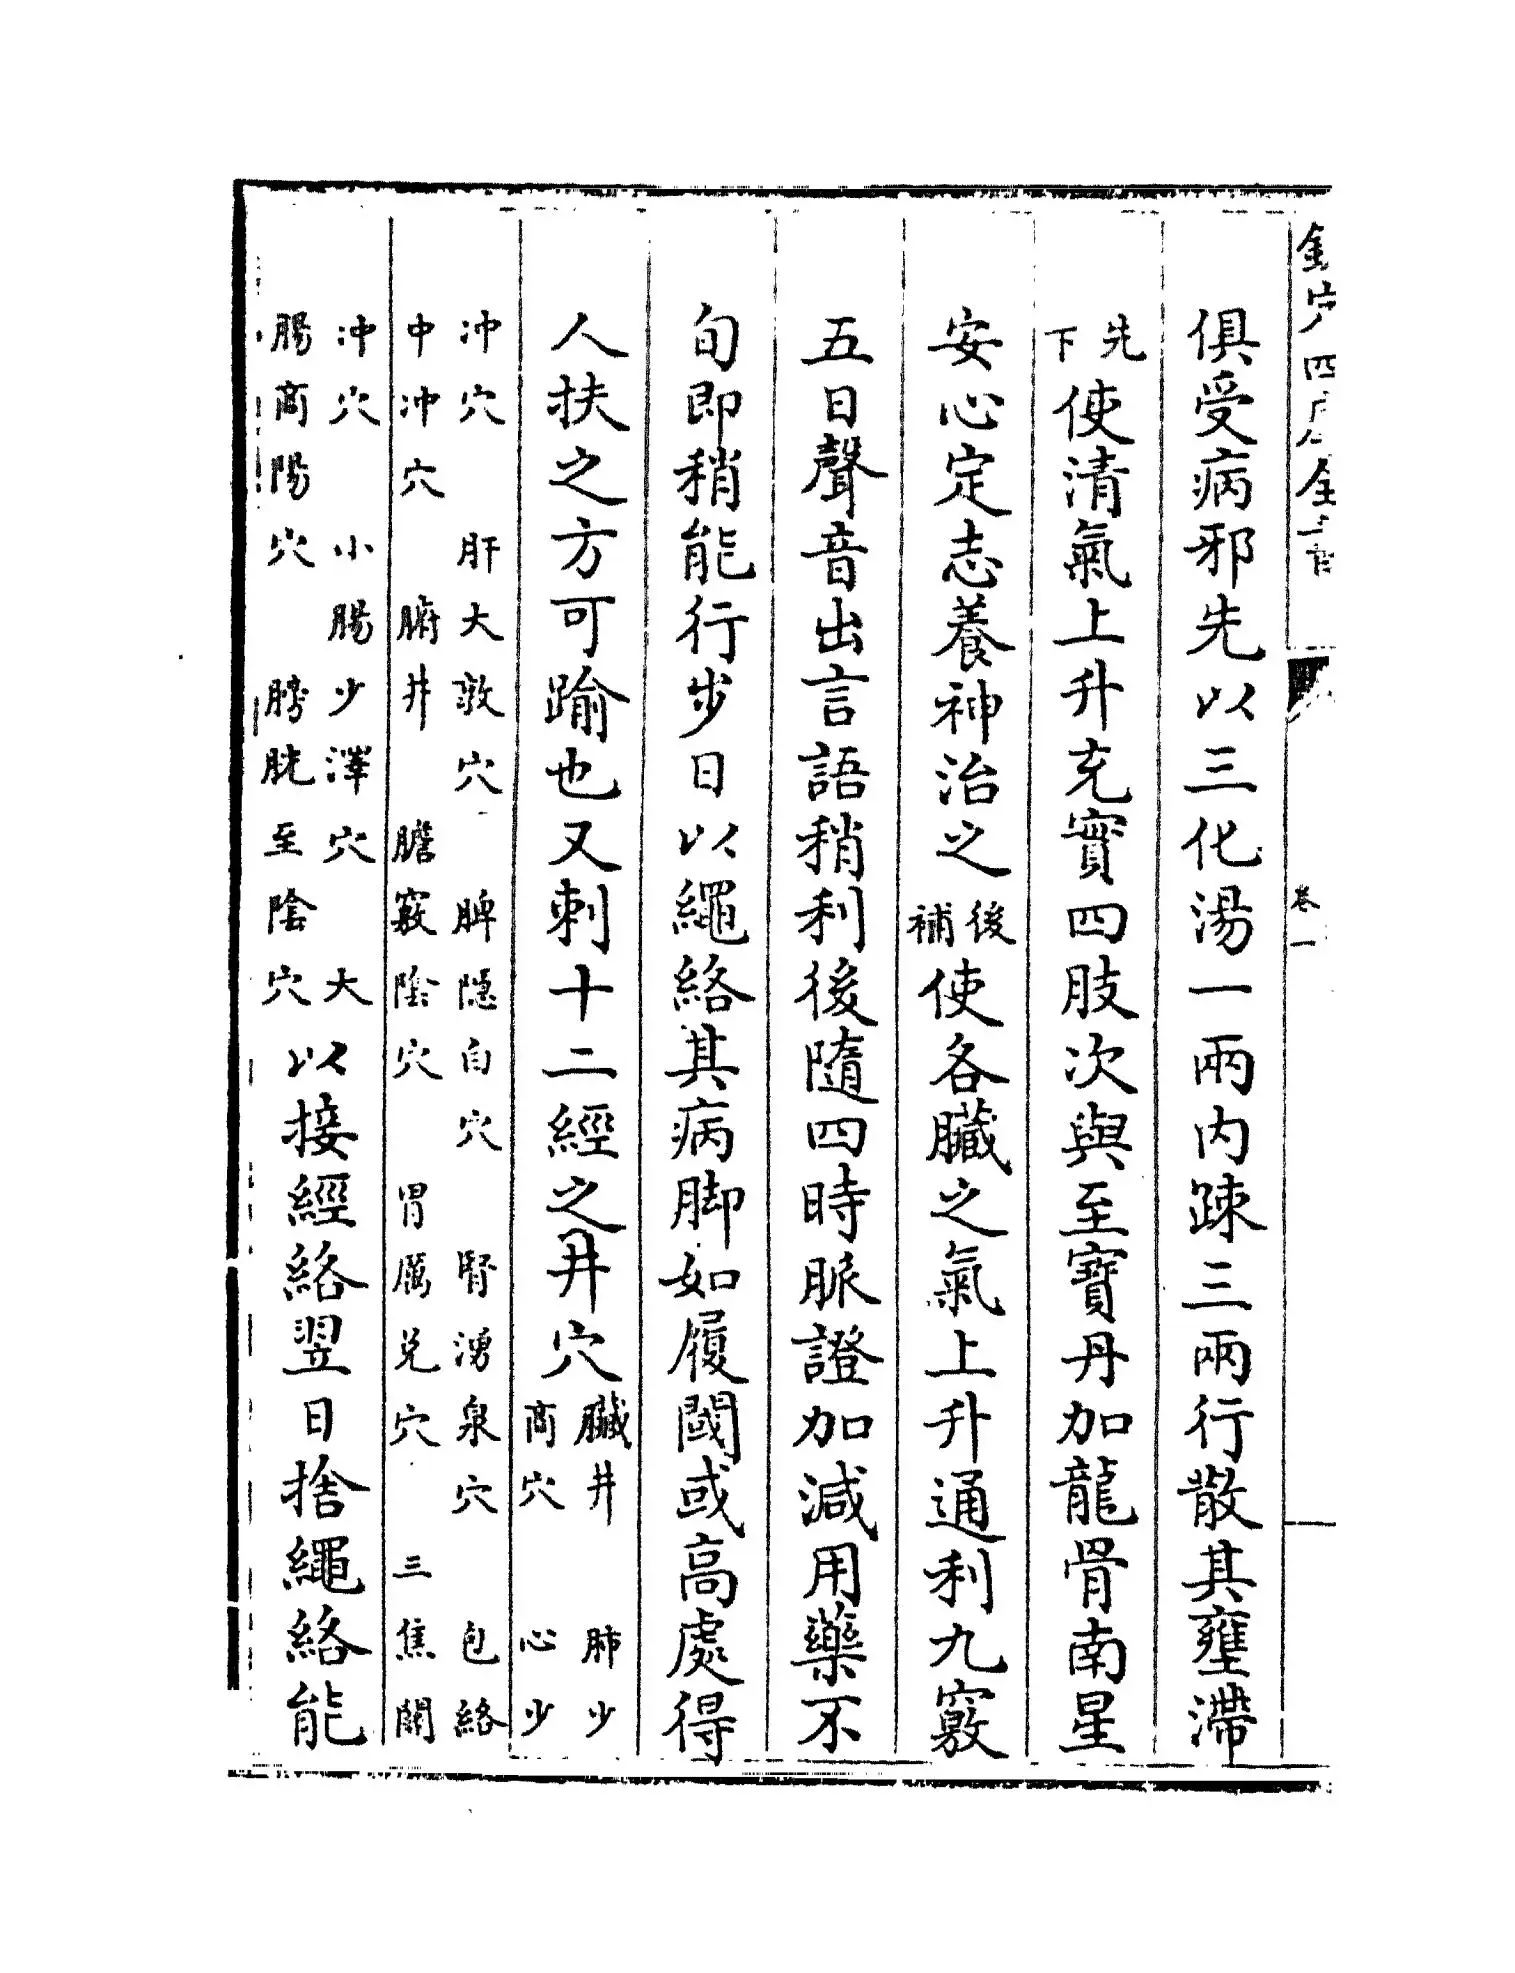 欽定四庫全書
卷一
俱受病邪先以三化湯一兩内踈三兩行散其壅滯
先下使清氣上升充實四肢次與至寶丹加龍骨南星
安心定志養神治之後補使各臟之氣上升通利九竅
五日聲音出言語稍利後隨四時脈證加減用藥不
旬即稍能行步日以繩絡其病脚如履閾或高處得
人扶之方可踰也又刺十二經之井穴臟井 肺少商穴 心少
冲穴 肝大敦穴 脾隠白穴 腎湧泉穴 包絡
中冲穴 腑井 膽竅陰穴 胃厲兌穴 三焦關
冲穴 小腸少澤穴 大腸商陽穴 膀胱至陰穴以接經絡翌日捨繩絡能